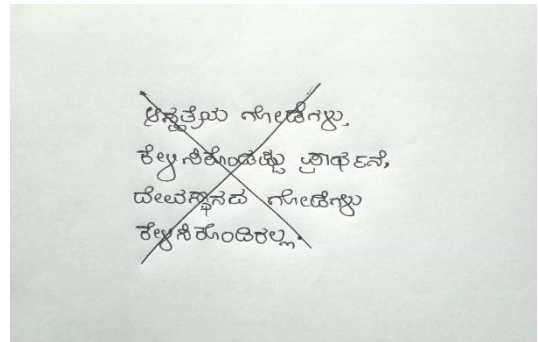 ಆಸ್ಪತ್ರೆಯ ಗೋಡೆಗಳು,
ಕೇಳಿಸಿಕೊಂಡಷ್ಟು ಪ್ರಾರ್ಥನೆ,
ದೇವಸ್ಥಾನದ ಗೋಡೆಗಳು
ಕೇಳಿಸಿಕೊಂಡಿರಲ್ಲ.